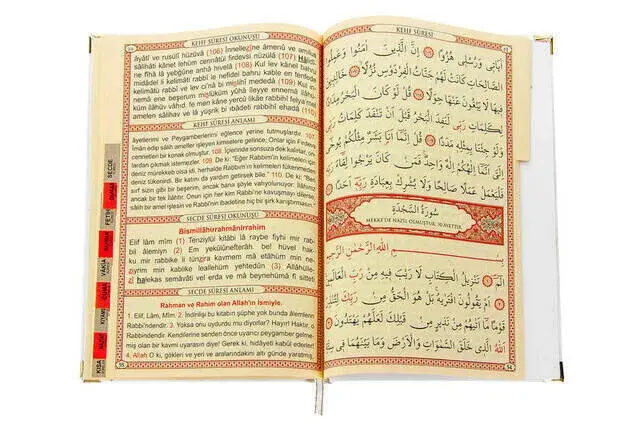 KEHF SÛRESİ OKUNUŞU
âyâtî ve rusulî hüzüvâ (106) İnnellezîne âmenû ve amilus
sâlihâti kânet lehüm cennâtül firdevsi nüzülâ (107) Hâlidî-
ne fîhâ lâ yebğûne anhâ hivelâ (108) Kul lev kânel bahru
midâdel li kelimâti rabbî le nefidel bahru kable en tenfede
kelimâtü rabbî ve lev ci'nâ bi mislihî mededâ (109) Kul in-
nemâ ene beşerum mislüküm yûhâ ileyye ennemâ ilâhü-
küm ilâhüv vâhıd, fe men kâne yercû likâe rabbihî felya'mel
amelen sâlihav ve lâ yüşrik bi ıbâdeti rabbihî ehadâ (110)
KEHF SÛRESİ ANLAMI
âyetlerimi ve Peygamberlerimi eğlence yerine tutmuşlardır. 107.
İmân edip sâlih ameller işleyen kimselere gelince; Onlar için Firdevs
cennetleri bir konak olmuştur. 108. İçlerinde sonsuza dek kalırlar, on-
lardan çıkmak istemezler. 109. De ki: "Eğer Rabbimin kelimeleri için
deniz mürekkep olsa idi, herhalde Rabbimin kelimeleri tükenmeden
deniz tükenirdi. Bir katını da yardım getirsek bile." 110. De ki: "Ben
sırf sizin gibi bir beşerim, ancak bana şöyle vahyolunuyor: İlâhınız
ancak bir tek ilâhtır. Onun için her kim Rabbi'ne kavuşmayı dilerse
sâlih amel işlesin ve Rabbi'nin ibadetine hiç bir şirk karıştırmasın."
SECDE SÛRESİ OKUNUŞU
Bismillâhirrahmânirrahîm
Elif lâm mîm (1) Tenzîlül kitâbi lâ raybe fîyhi mir rab-
bil âlemîyn (2) Em yekûlûnefterâh, bel hüvel hak-
ku mir rabbike li tünzira kavmem mâ etâhüm min ne-
ziyrim min kablike leallehüm yehtedûn (3) Allâhülle-
zî halekas semâvâti vel erda ve mâ beynehümâ fî sitteti
SECDE SÛRESİ ANLAMI
Rahman ve Rahim olan Allah'ın ismiyle.
1. Elif, Lâm, Mîm. 2. İndirilişi bu kitabın şüphe yok bunda âlemlerin
Rabbi'ndendir. 3. Yoksa onu uydurdu mu diyorlar? Hayır! Haktır, o
Rabbindendir. Kendilerine senden önce uyarıcı peygamber gelme-
miş olan bir kavmi uyarasın diye! Gerek ki, hidâyeti kabul ederler!
4. Allah O ki, gökleri ve yeri ve aralarındakini altı günde yaratmış,
SECDE
FETİH
VÂKIA
CUMA
KISA
KEHF SÛRESİ
اٰيَاتٖى وَرُسُلٖى هُزُوًا ﴿١٠٦﴾ اِنَّ الَّذٖينَ اٰمَنُوا وَعَمِلُوا
الصَّالِحَاتِ كَانَتْ لَهُمْ جَنَّاتُ الْفِرْدَوْسِ نُزُلًا ﴿١٠٧﴾ خَالِدٖينَ
فٖيهَا لَا يَبْغُونَ عَنْهَا حِوَلًا ﴿١٠٨﴾ قُلْ لَوْ كَانَ الْبَحْرُ مِدَادًا
لِكَلِمَاتِ رَبّٖى لَنَفِدَ الْبَحْرُ قَبْلَ اَنْ تَنْفَدَ كَلِمَاتُ رَبّٖى
وَلَوْ جِئْنَا بِمِثْلِهٖ مَدَدًا ﴿١٠٩﴾ قُلْ اِنَّمَا اَنَا بَشَرٌ مِثْلُكُمْ يُوحٰى
اِلَىَّ اَنَّمَا اِلٰهُكُمْ اِلٰهٌ وَاحِدٌ فَمَنْ كَانَ يَرْجُوا لِقَاءَ رَبِّهٖ
فَلْيَعْمَلْ عَمَلًا صَالِحًا وَلَا يُشْرِكْ بِعِبَادَةِ رَبِّهٖ اَحَدًا ﴿١١٠﴾
سُورَةُ السَّجْدَةِ
MEKKE'DE NAZİL OLMUŞTUR. 30 AYETTİR.
بِسْمِ اللّٰهِ الرَّحْمٰنِ الرَّحٖيمِ
الٓمٓ ﴿١﴾ تَنْزٖيلُ الْكِتَابِ لَا رَيْبَ فٖيهِ مِنْ رَبِّ الْعَالَمٖينَ
﴿٢﴾ اَمْ يَقُولُونَ افْتَرٰيهُ بَلْ هُوَ الْحَقُّ مِنْ رَبِّكَ لِتُنْذِرَ
قَوْمًا مَا اَتٰيهُمْ مِنْ نَذٖيرٍ مِنْ قَبْلِكَ لَعَلَّهُمْ يَهْتَدُونَ ﴿٣﴾
اَللّٰهُ الَّذٖى خَلَقَ السَّمٰوَاتِ وَالْاَرْضَ وَمَا بَيْنَهُمَا فٖى